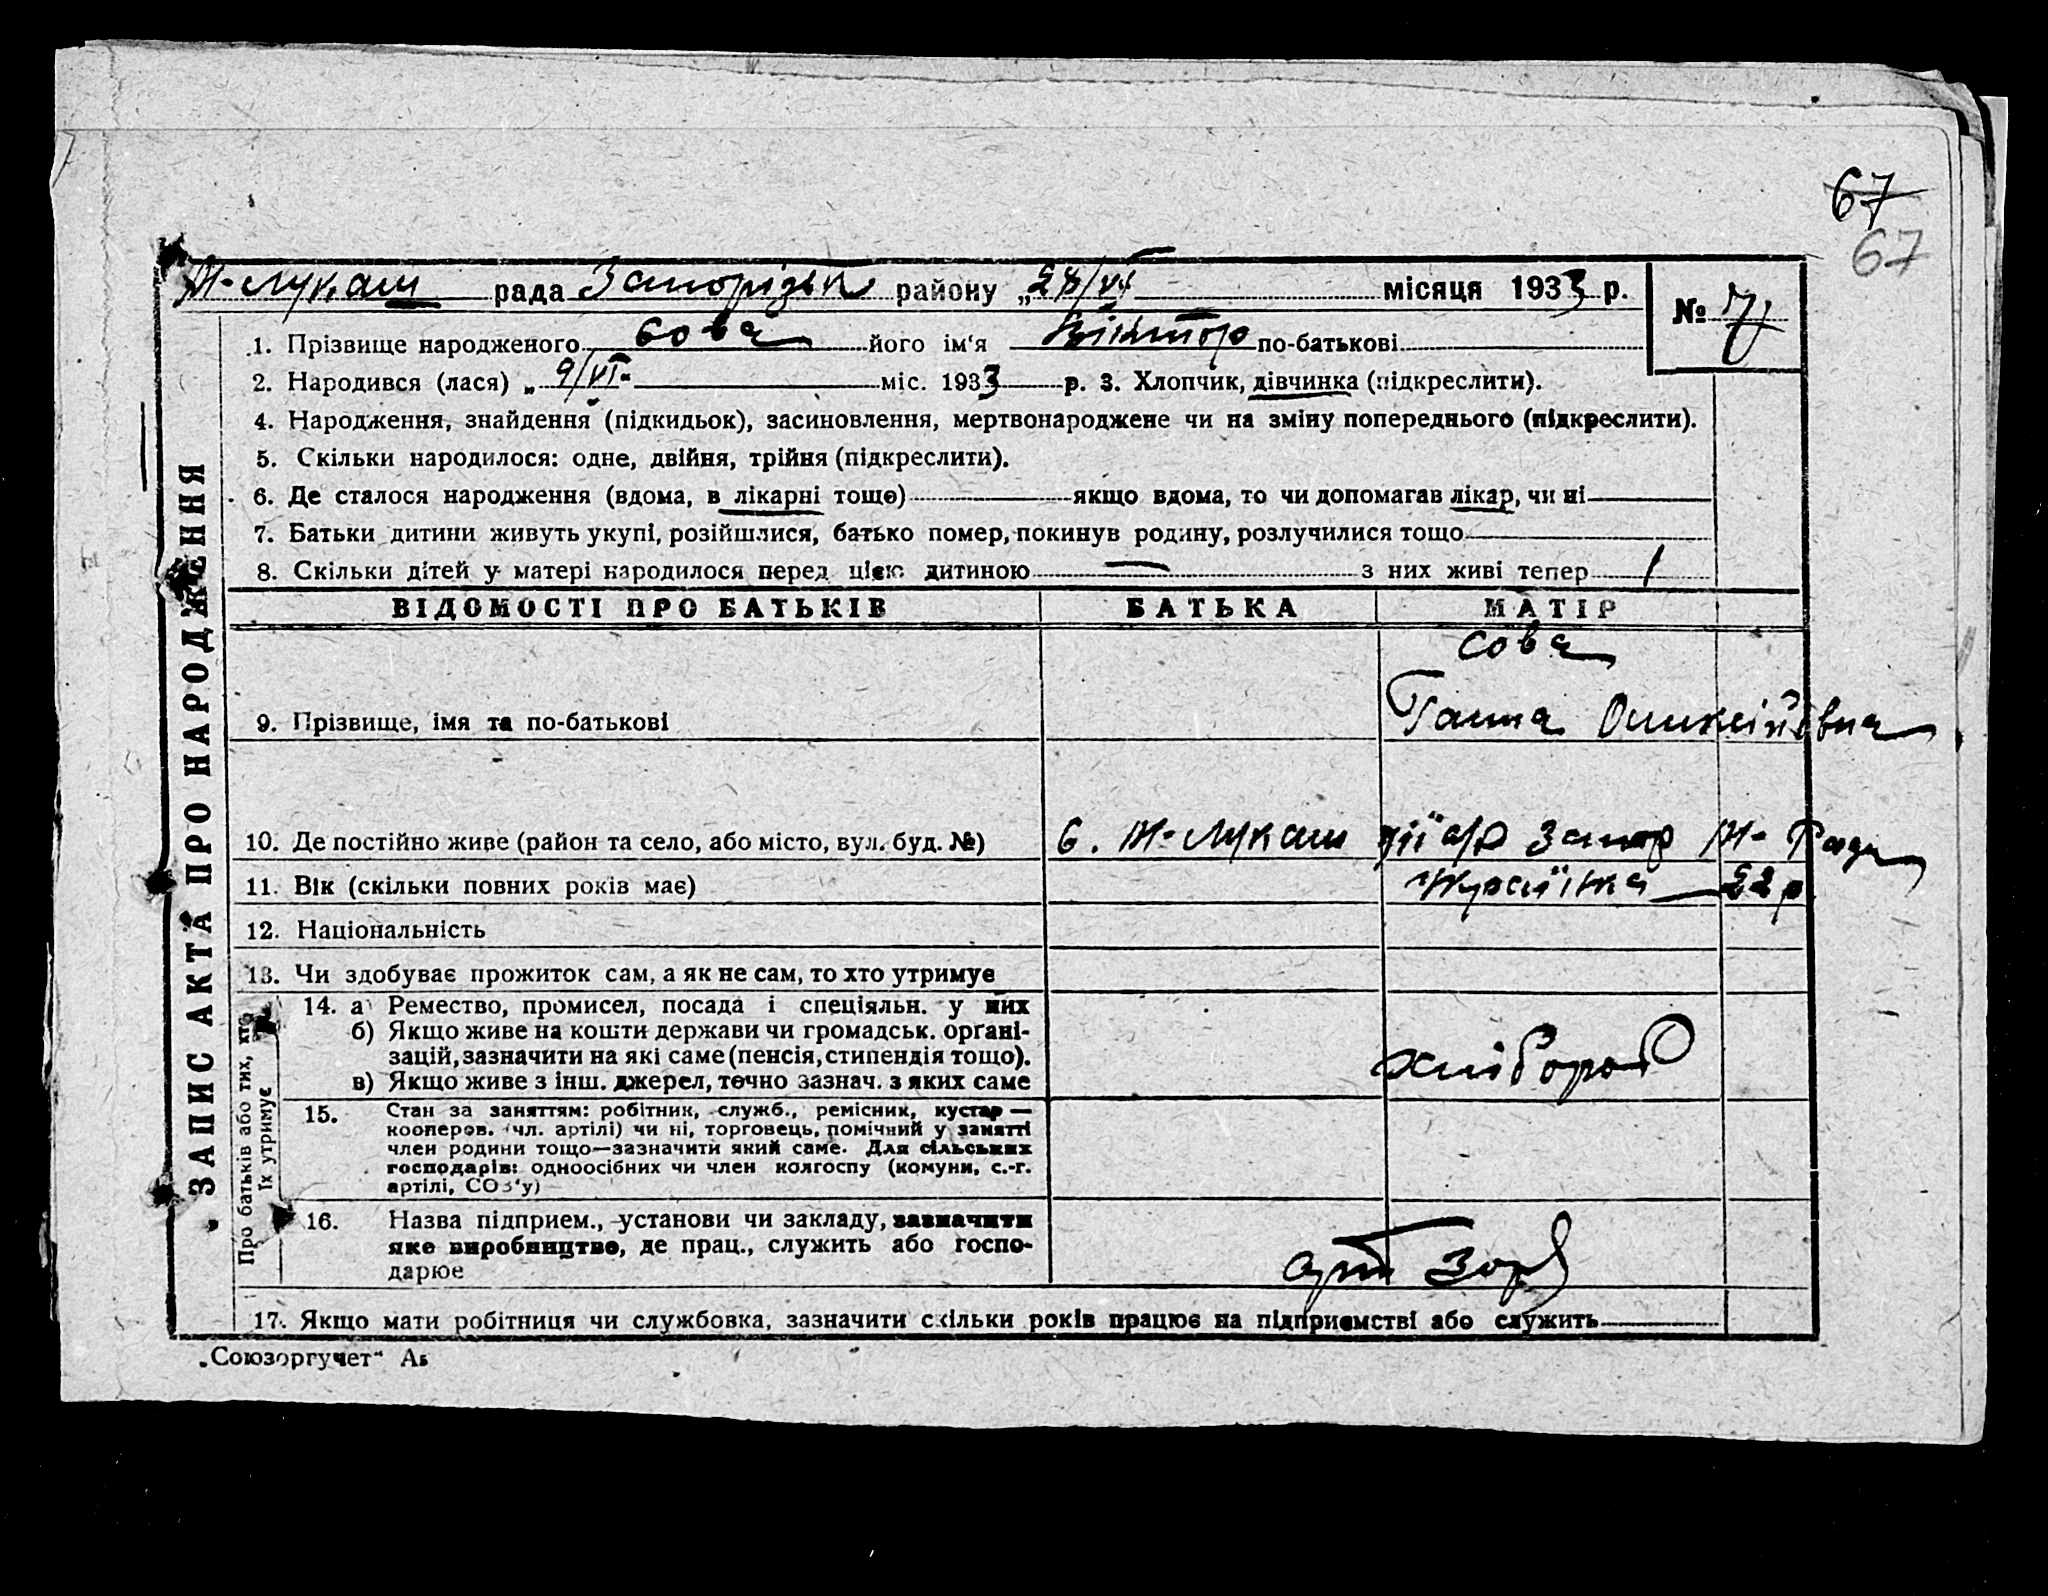 67
67
Н-Лукаш рада Запорізьк району „28/VI місяця 1933 р. №
1. Прізвище народженого Сова його ім'я Віктор по-батькові
2. Народився (лася) „ 9/VI" міс. 1933 р. 3. Хлопчик, дівчинка (підкреслити).
4. Народження, знайдення (підкидьок), засиновлення, мертвонароджене чи на зміну попереднього (підкреслити).
5. Скільки народилося: одне, двійня, трійня (підкреслити).
6. Де сталося народження (вдома, в лікарні тощо) якщо вдома, то чи допомагав лікар, чи ні
7. Батьки дитини живуть укупі, розійшлися, батько помер, покинув родину, розлучилися тощо
8. Скільки дітей у матері народилося перед цією дитиною — з них живі тепер 1
ЗАПИС АКТА ПРО НАРОДЖЕННЯ
ВІДОМОСТІ ПРО БАТЬКІВ БАТЬКА МАТІР
Сова
9. Прізвище, імя та по-батькові Ганна Оликсіївна
10. Де постійно живе (район та село, або місто, вул. буд. №) с. Н-Лукаш Запор Н-
11. Вік (скільки повних років має) 22 р
12. Національність
13. Чи здобуває прожиток сам, а як не сам, то хто утримує
Про батьків або тих, хто
їх утримує
14. а) Ремество, промисел, посада і спеціяльн. у них
б) Якщо живе на кошти держави чи громадськ. органі-
зацій, зазначити на які саме (пенсія, стипендія тощо).
в) Якщо живе з інш. джерел, точно зазнач. з яких саме
хлібороб
15. Стан за заняттям: робітник, служб., ремісник, кустар —
кооперов. (чл. артілі) чи ні, торговець, помічний у занятті
член родини тощо—зазначити який саме. Для сільських
господарів: одноосібних чи член колгоспу (комуни, с.-г.
артілі, СОЗ'у)
16. Назва підприєм., установи чи закладу, зазначити
яке виробництво, де прац., служить або госпо-
дарює
арт Зоря
17. Якщо мати робітниця чи службовка, зазначити скільки років працює на підприємстві або служить
„Союзоргучет"